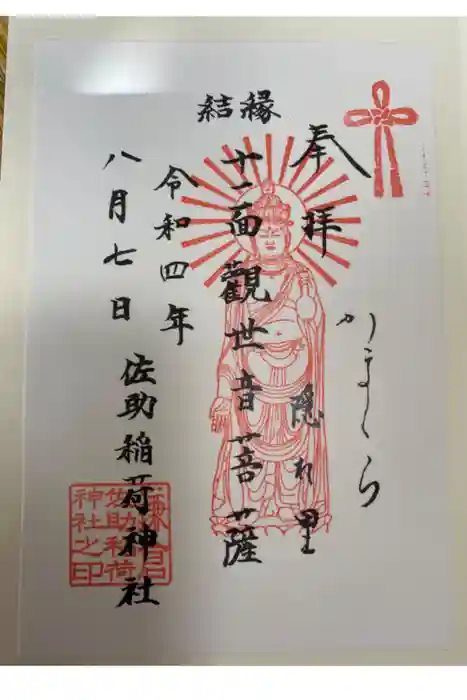 結縁
奉拝
かまくら
隠れ里
十一面觀世音菩薩
令和四年
八月七日
佐助稲荷神社
鎌倉
佐助稲荷
神社之印